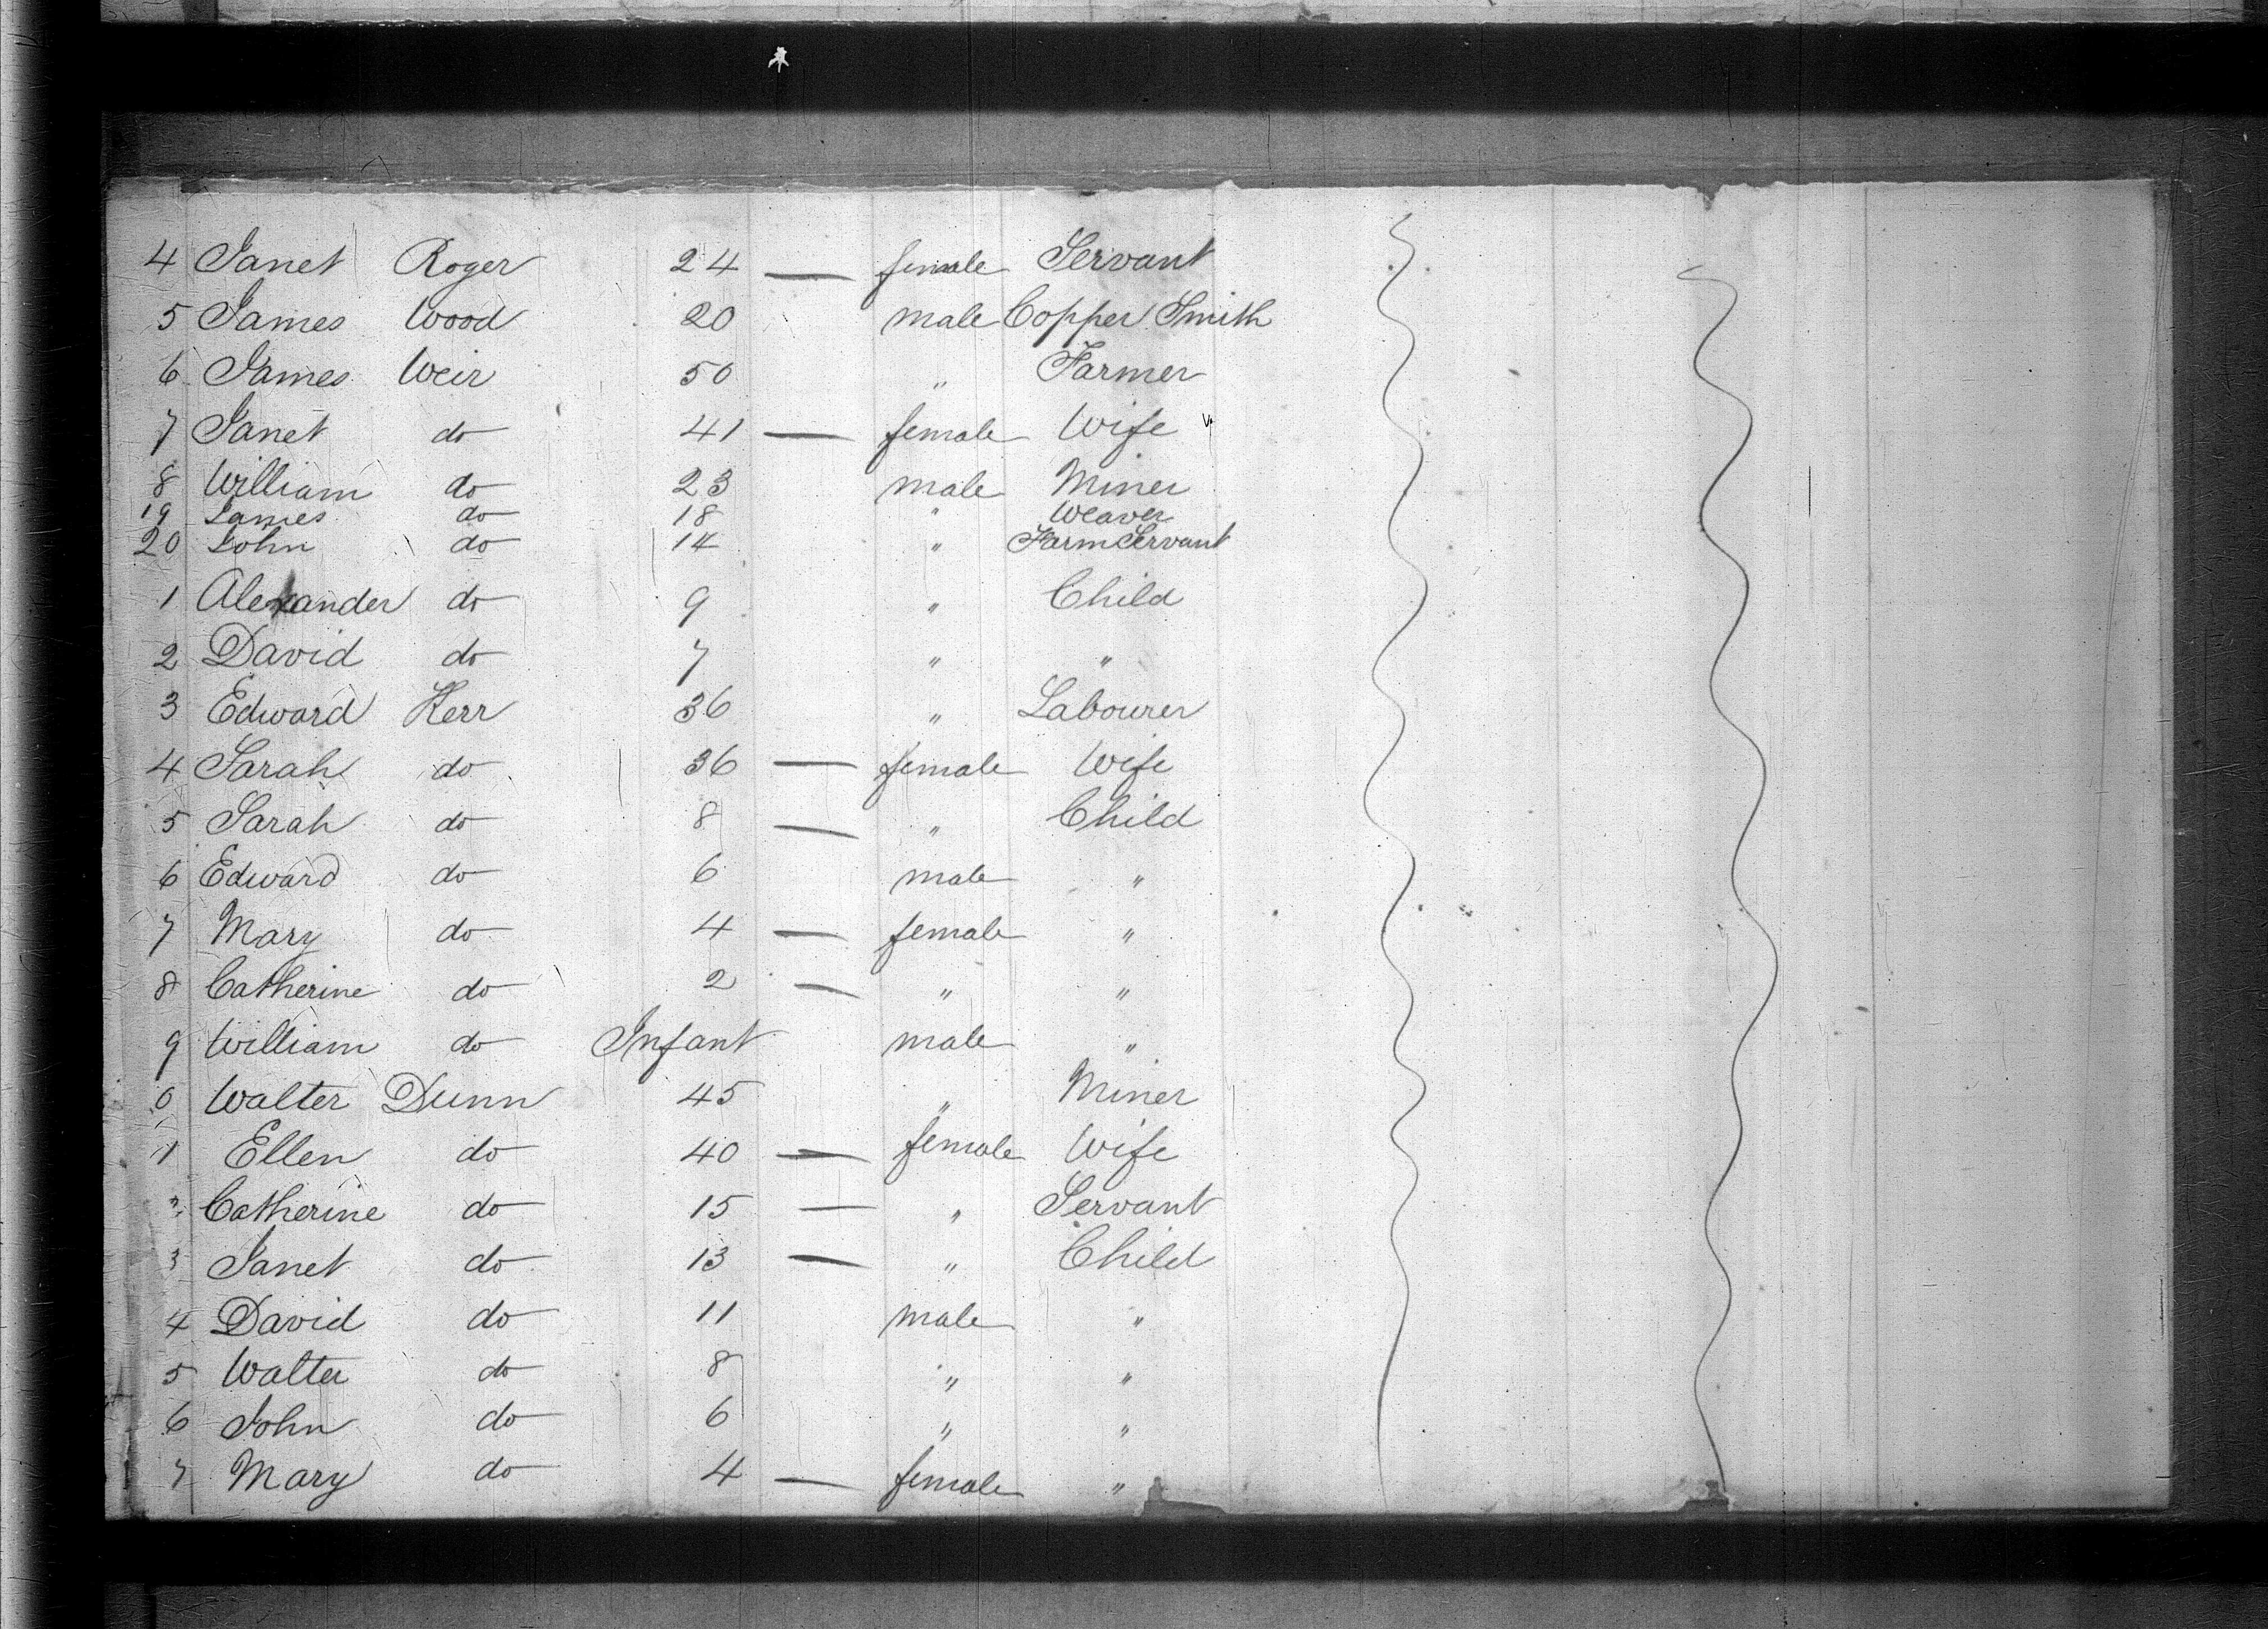 4 Janet Roger 24 — female Servant
5 James Wood 20 male Copper Smith
6 James Weir 50 " Farmer
7 Janet do 41 — female Wife
8 William do 23 male Miner
19 James do 18 " Weaver
20 John do 14 " Farm Servant
1 Alexander do 9 " Child
2 David do 7 " "
3 Edward Kerr 36 " Labourer
4 Sarah do 36 — female Wife
5 Sarah do 8 — " Child
6 Edward do 6 male "
7 Mary do 4 — female "
8 Catherine do 2 — " "
9 William do Infant male "
0 Walter Dunn 45 " Miner
1 Ellen do 40 — female Wife
Catherine do 15 — " Servant
3 Janet do 13 — " Child
4 David do 11 male "
5 Walter do 8 " "
6 John do 6 " "
7 Mary do 4 — female "